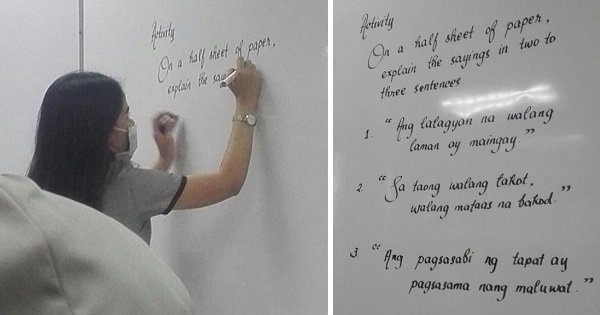 Activity
On a half sheet of paper,
explain the say
Activity
On a half sheet of paper,
explain the sayings in two to
three sentences.
1. "Ang lalagyan na walang
laman ay maingay."
2. "Sa taong walang takot,
walang mataas na bakod."
3. "Ang pagsasabi ng tapat ay
pagsasama nang maluwat."